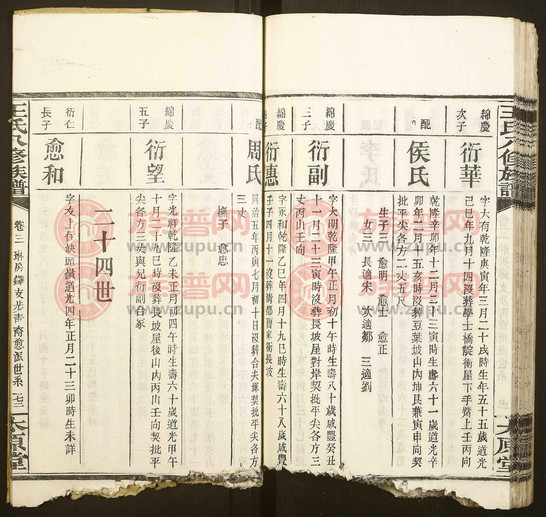 王氏八修族譜
綿慶
次子
衍華
字大有乾隆庚寅年三月二十戌時生年五十五歲道光
己巳年九月十四沒葬學士橋
衍屋下手
上壬丙向
配
侯氏
乾隆辛卯年十二月二十三寅時生壽六十一歲道光辛
卯年二月十五亥時沒葬豆葉坡山內坤艮兼寅申向契
批平尖各方二丈五尺
生子三 愈明 愈士 愈正
女三 長適宋 次適鄒 三適劉
綿慶
三子
衍副
字大開乾隆甲午正月初十午時生壽八十歲咸豐癸丑
十一月二十三寅時沒葬長坡屋對岸契批平尖各方三
丈丙壬向
綿慶
四子
衍惠
字永和乾隆乙巳年四月十九巳時生壽六十八歲咸豐
壬子四月
配
周氏
同治五年丙寅七月初十日沒葬合夫塚契批平尖各方
三丈
撫子 愈忠
綿慶
五子
衍望
字光澤乾隆乙未正月初四午時生壽六十歲道光甲午
十月二十九巳時沒葬長坡屋後山內丙山壬向契批平
尖各方二丈與兄衍副合冢
二十四世
衍仁
長子
愈和
道光四年正月二十三卯時生未詳
王氏八修族譜
卷三
愈派世系
太原堂
太原堂